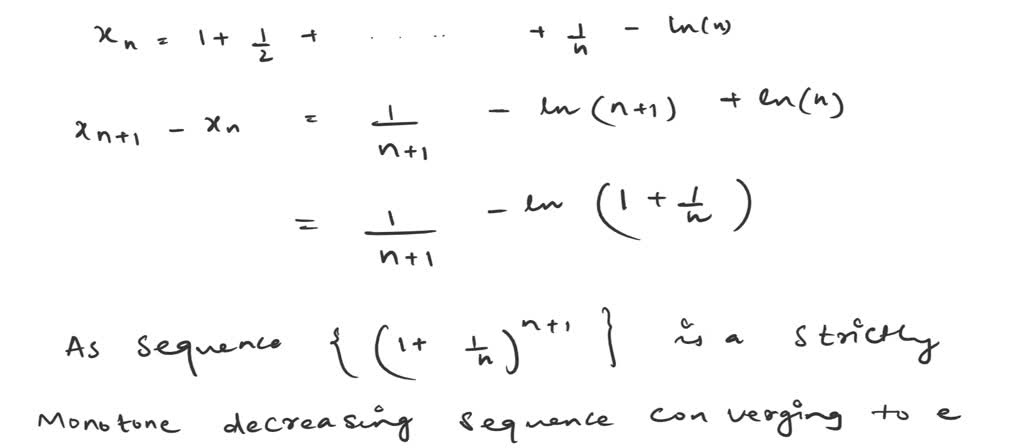 xₙ = 1 + 1/2 + . . . .. + 1/n - ln(n)
xₙ₊₁ - xₙ = 1/(n+1) - ln(n+1) + ln(n)
= 1/(n+1) - ln(1 + 1/n)
As sequence {(1 + 1/n)ⁿ⁺¹} is a strictly
Monotone decreasing sequence converging to e